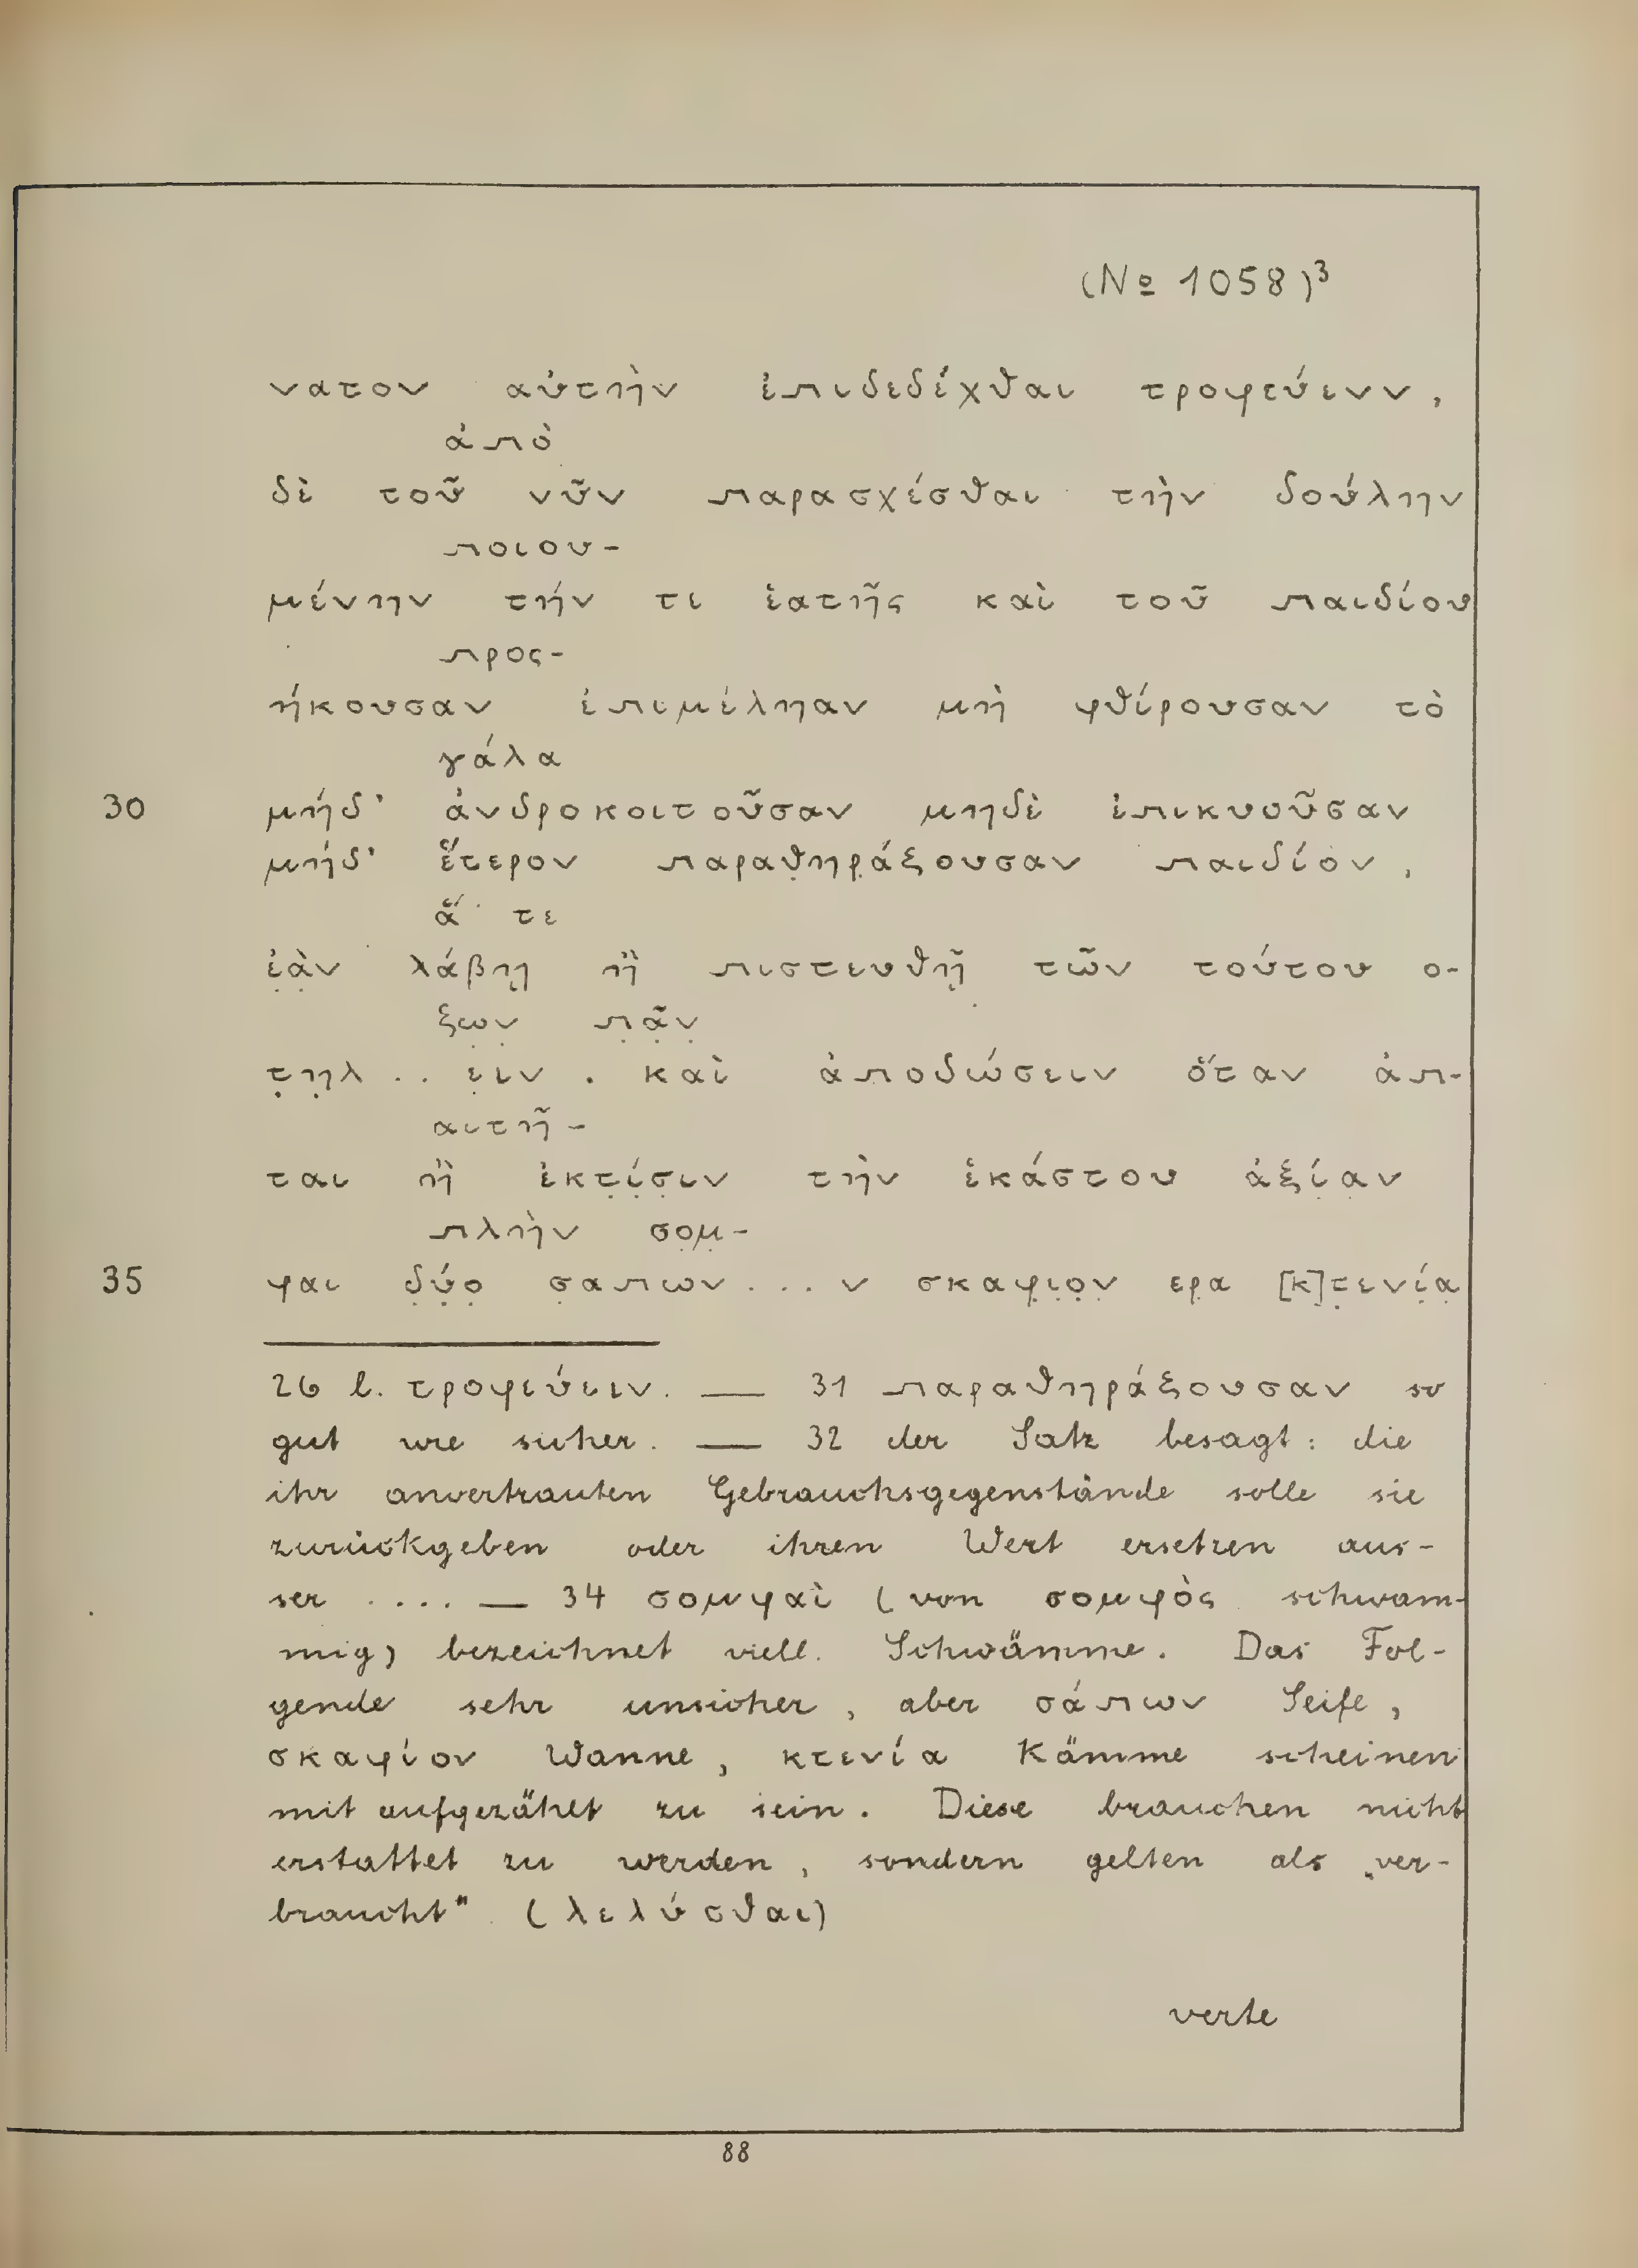 (№ 1058)³
νατον αὐτὴν ἐπιδεδέχθαι τροφεύινν,
ἀπὸ
δὲ τοῦ νῦν παρασχέσθαι τὴν δούλην
ποιου-
μένην τήν τι ἑατῆς καὶ τοῦ παιδίου
προς-
ήκουσαν ἐπιμέληαν μὴ φθίρουσαν τὸ
γάλα
30 μήδ' ἀνδροκοιτοῦσαν μηδὲ ἐπικυοῦσαν
μήδ' ἕτερον παραθ̣ηρ̣άξουσαν παιδίον,
ἅ τε
ἐ̣ὰ̣ν λάβῃ ἢ πιστευθῇ τῶν τούτου ο-
ξω̣ν̣ π̣ᾶ̣ν̣
τ̣η̣λ .. ε̣ιν . καὶ ἀποδώσειν ὅταν ἀπ-
αιτῆ-
ται ἢ ἐκτ̣ί̣σ̣ιν τὴν ἑκάστου ἀξί̣α̣ν
πλὴν σο̣μ̣-
35 φαι δ̣ύ̣ο̣ σ̣απων ... ν σκαφ̣ι̣ο̣ν̣ ερ̣α [κ]τ̣ενί̣α̣
26 l. τροφεύειν. — 31 παραθηράξουσαν so
gut wie sicher. — 32 der Satz besagt: die
ihr anvertrauten Gebrauchsgegenstände solle sie
zurückgeben oder ihren Wert ersetzen aus-
ser .... — 34 σομφαὶ (von σομφὸς schwam-
mig) bezeichnet viell. Schwämme. Das Fol-
gende sehr unsicher, aber σάπων Seife,
σκαφίον Wanne, κτενία Kämme scheinen
mit aufgezählt zu sein. Diese brauchen nicht
erstattet zu werden, sondern gelten als „ver-
braucht" (λελύσθαι)
verte
88